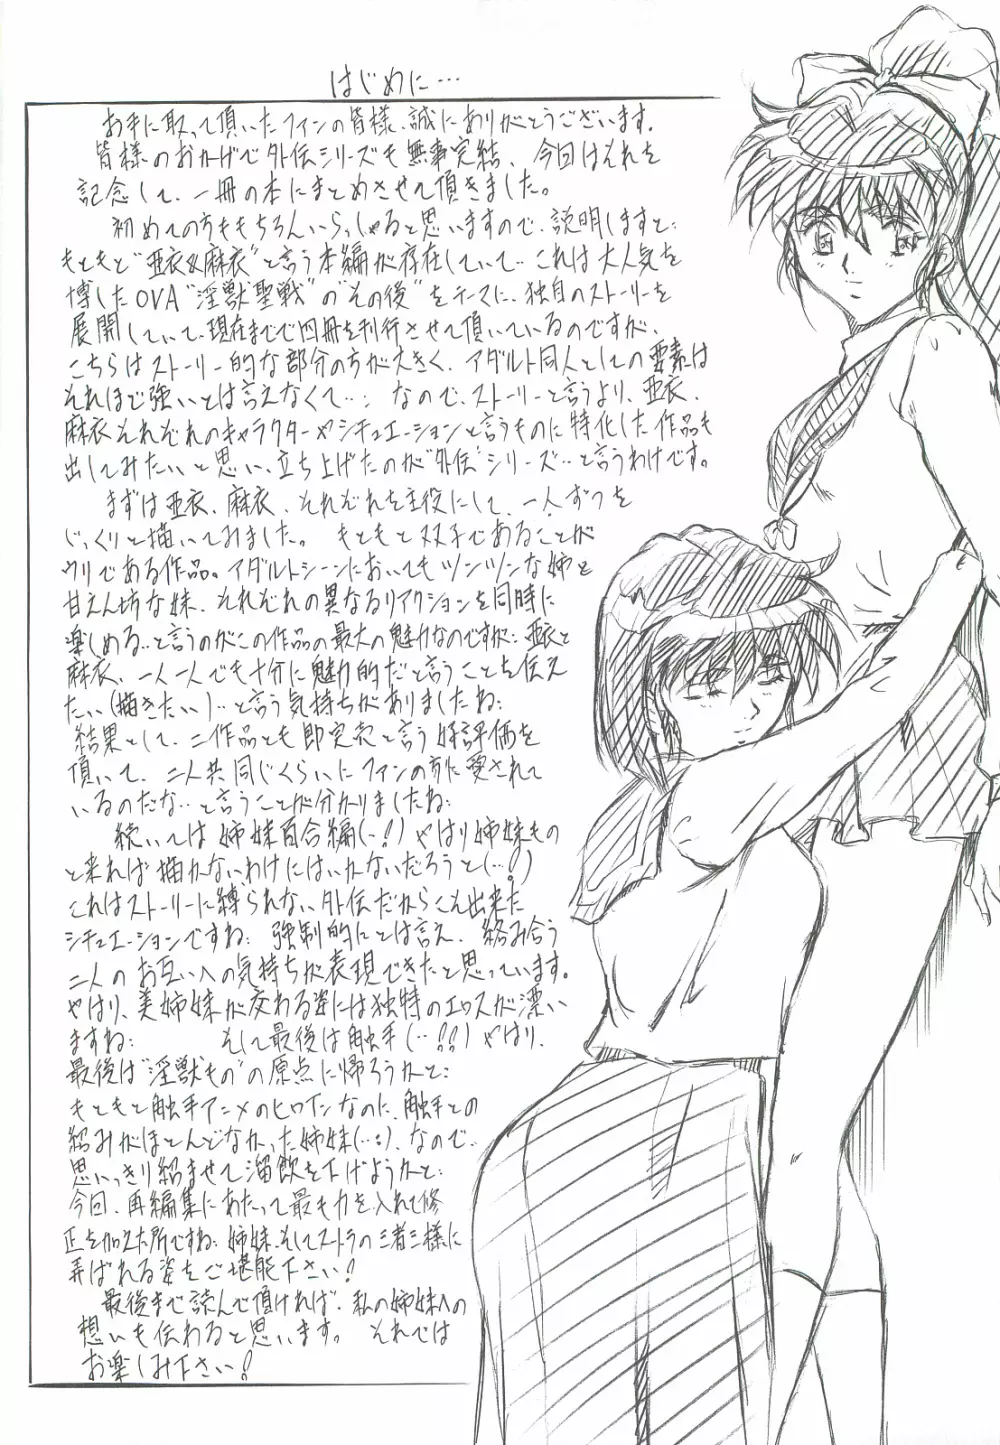 はじめに…
お手に取って頂いたファンの皆様、誠にありがとうございます。
皆様のおかげで外伝シリーズも無事完結、今回はそれを
記念して、一冊の本にまとめさせて頂きました。
初めての方ももちろんいらっしゃると思いますので、説明しますと…
もともと“亜衣&麻衣”と言う本編が存在していて… これは大人気を
博したOVA“淫獣聖戦”の“その後”をテーマに、独自のストーリーを
展開していて、現在までで四冊を刊行させて頂いているのですが、
こちらはストーリー的な部分の方が大きく、アダルト同人としての要素は
それほど強いとは言えなくて…; なので、ストーリーと言うより、亜衣、
麻衣それぞれのキャラクターやシチュエーションと言うものに特化した作品も
出してみたいと思い、立ち上げたのが“外伝”シリーズ…と言うわけです。
まずは亜衣、麻衣、それぞれを主役にして、一人ずつを
じっくりと描いてみました。 もともと双子であることが
ウリである作品。アダルトシーンにおいてもツンツンな姉と
甘えん坊な妹、それぞれの異なるリアクションを同時に
楽しめる…と言うのがこの作品の最大の魅力なのですが… 亜衣と
麻衣、一人一人でも十分に魅力的だと言うことを伝え
たい(描きたい)…と言う気持ちがありましたね…
結果として、二作品とも即完売と言う好評価を
頂いて、二人共同じくらいにファンの方に愛されて
いるのだな…と言うことが分かりましたね…
続いては姉妹百合編(…!) やはり姉妹もの
と来れば描かないわけにはいかないだろうと(…?)
これはストーリーに縛られない外伝だからこそ出来た
シチュエーションですね… 強制的にとは言え、絡み合う
二人のお互いへの気持ちが表現できたと思っています。
やはり、美姉妹が交わる姿には独特のエロスが漂い
ますね… そして最後は触手(…!?) やはり、
最後は“淫獣もの”の原点に帰ろうかと…
もともと触手アニメのヒロインなのに、触手との
絡みがほとんどなかった姉妹(…;)、なので、
思いっきり絡ませて溜飲を下げようかと…
今回、再編集にあたって最も力を入れて修
正を加えた所ですね… 姉妹、そしてストラの三者三様に
弄ばれる姿をご堪能下さい!
最後まで読んで頂ければ、私の姉妹への
想いも伝わると思います。 それでは
お楽しみ下さい!